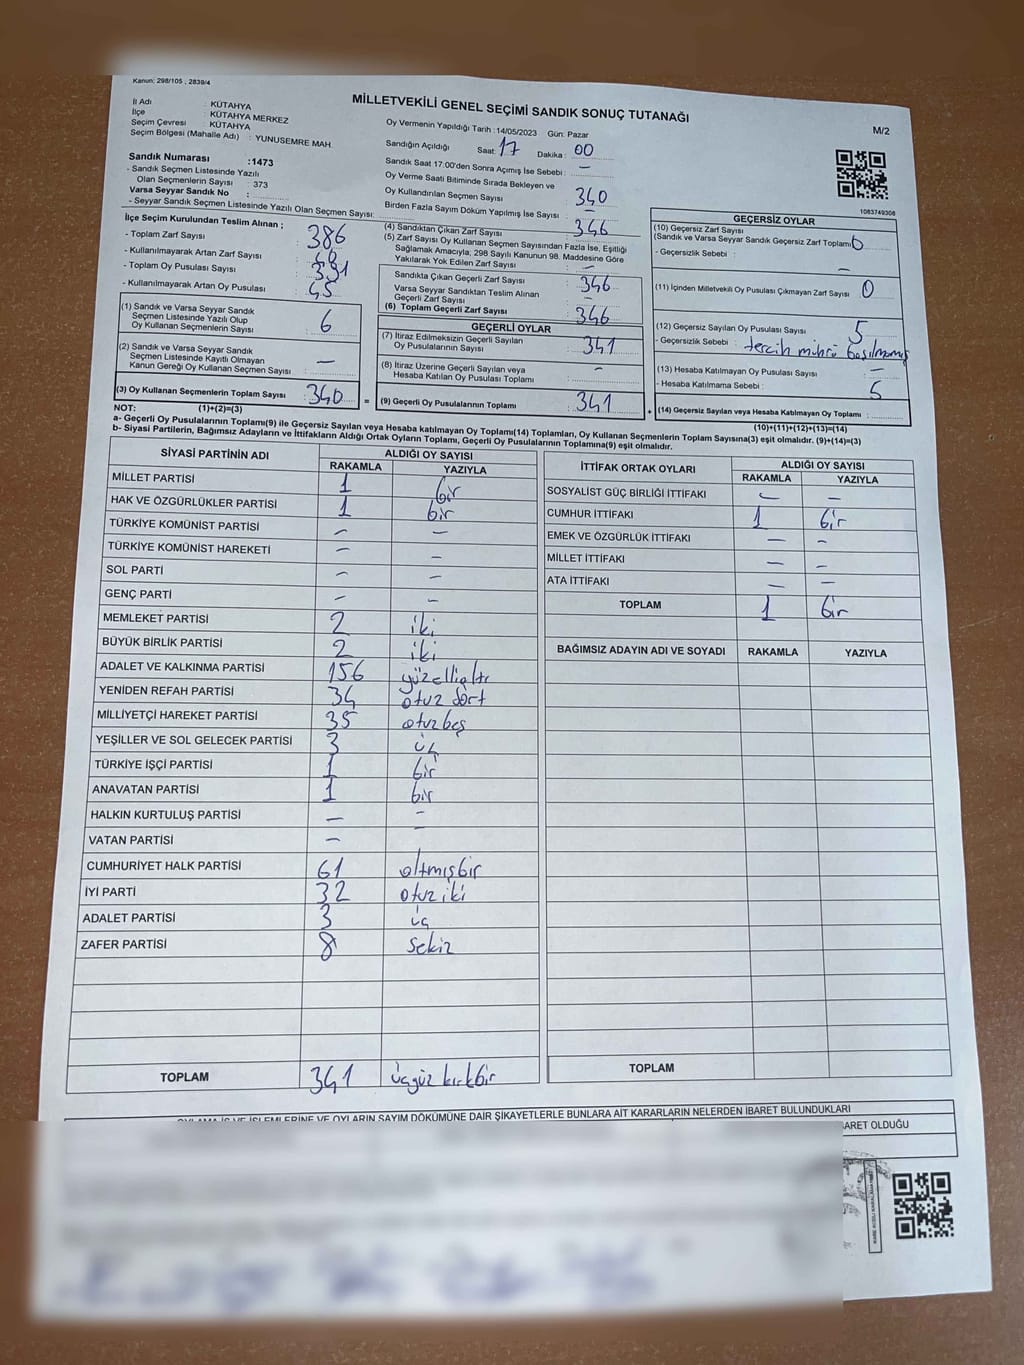 Kanun; 298/105 ; 2839/4
MİLLETVEKİLİ GENEL SEÇİMİ SANDIK SONUÇ TUTANAĞI
M/2
İl Adı : KÜTAHYA
İlçe : KÜTAHYA MERKEZ
Seçim Çevresi : KÜTAHYA
Seçim Bölgesi (Mahalle Adı) : YUNUSEMRE MAH.
Sandık Numarası :1473
- Sandık Seçmen Listesinde Yazılı
Olan Seçmenlerin Sayısı : 373
Varsa Seyyar Sandık No :
- Seyyar Sandık Seçmen Listesinde Yazılı Olan Seçmen Sayısı:
Oy Vermenin Yapıldığı Tarih :14/05/2023 Gün: Pazar
Sandığın Açıldığı Saat: 17 Dakika : 00
Sandık Saat 17:00'den Sonra Açımış İse Sebebi : –
Oy Verme Saati Bitiminde Sırada Bekleyen ve
Oy Kullandırılan Seçmen Sayısı 340
Birden Fazla Sayım Döküm Yapılmış İse Sayısı : –
1083749308
İlçe Seçim Kurulundan Teslim Alınan ;
- Toplam Zarf Sayısı : 386
- Kullanılmayarak Artan Zarf Sayısı :
- Toplam Oy Pusulası Sayısı : 391
- Kullanılmayarak Artan Oy Pusulası : 45
(1) Sandık ve Varsa Seyyar Sandık
Seçmen Listesinde Yazılı Olup
Oy Kullanan Seçmenlerin Sayısı : 6
(2) Sandık ve Varsa Seyyar Sandık
Seçmen Listesinde Kayıtlı Olmayan
Kanun Gereği Oy Kullanan Seçmen Sayısı : –
(3) Oy Kullanan Seçmenlerin Toplam Sayısı : 340
(1)+(2)=(3)
(4) Sandıktan Çıkan Zarf Sayısı : 346
(5) Zarf Sayısı Oy Kullanan Seçmen Sayısından Fazla İse, Eşitliği
Sağlamak Amacıyla; 298 Sayılı Kanunun 98. Maddesine Göre
Yakılarak Yok Edilen Zarf Sayısı : –
Sandıkta Çıkan Geçerli Zarf Sayısı : 346
Varsa Seyyar Sandıktan Teslim Alınan
Geçerli Zarf Sayısı : –
(6) Toplam Geçerli Zarf Sayısı : 346
GEÇERLİ OYLAR
(7) İtiraz Edilmeksizin Geçerli Sayılan
Oy Pusulalarının Sayısı : 341
(8) İtiraz Üzerine Geçerli Sayılan veya
Hesaba Katılan Oy Pusulası Toplamı : –
= (9) Geçerli Oy Pusulalarının Toplamı : 341
GEÇERSİZ OYLAR
(10) Geçersiz Zarf Sayısı
(Sandık ve Varsa Seyyar Sandık Geçersiz Zarf Toplamı)
- Geçersizlik Sebebi : –
(11) İçinden Milletvekili Oy Pusulası Çıkmayan Zarf Sayısı : 0
(12) Geçersiz Sayılan Oy Pusulası Sayısı : 5
- Geçersizlik Sebebi : tercih mührü basılmamış
(13) Hesaba Katılmayan Oy Pusulası Sayısı : –
- Hesaba Katılmama Sebebi : 5
+ (14) Geçersiz Sayılan veya Hesaba Katılmayan Oy Toplamı :
(10)+(11)+(12)+(13)=(14)
NOT:
a- Geçerli Oy Pusulalarının Toplamı(9) ile Geçersiz Sayılan veya Hesaba katılmayan Oy Toplamı(14) Toplamları, Oy Kullanan Seçmenlerin Toplam Sayısına(3) eşit olmalıdır. (9)+(14)=(3)
b- Siyasi Partilerin, Bağımsız Adayların ve İttifakların Aldığı Ortak Oyların Toplamı, Geçerli Oy Pusulalarının Toplamına(9) eşit olmalıdır.
SİYASİ PARTİNİN ADI ALDIĞI OY SAYISI
RAKAMLA YAZIYLA
MİLLET PARTİSİ 1 bir
HAK VE ÖZGÜRLÜKLER PARTİSİ 1 bir
TÜRKİYE KOMÜNİST PARTİSİ – –
TÜRKİYE KOMÜNİST HAREKETİ – –
SOL PARTİ – –
GENÇ PARTİ – –
MEMLEKET PARTİSİ 2 iki
BÜYÜK BİRLİK PARTİSİ 2 iki
ADALET VE KALKINMA PARTİSİ 156 yüzellialtı
YENİDEN REFAH PARTİSİ 34 otuz dört
MİLLİYETÇİ HAREKET PARTİSİ 35 otuzbeş
YEŞİLLER VE SOL GELECEK PARTİSİ 3 üç
TÜRKİYE İŞÇİ PARTİSİ 1 bir
ANAVATAN PARTİSİ 1 bir
HALKIN KURTULUŞ PARTİSİ – –
VATAN PARTİSİ – –
CUMHURİYET HALK PARTİSİ 61 altmışbir
İYİ PARTİ 32 otuz iki
ADALET PARTİSİ 3 üç
ZAFER PARTİSİ 8 sekiz
TOPLAM 341 üçyüz kırkbir
İTTİFAK ORTAK OYLARI ALDIĞI OY SAYISI
RAKAMLA YAZIYLA
SOSYALİST GÜÇ BİRLİĞİ İTTİFAKI – –
CUMHUR İTTİFAKI 1 bir
EMEK VE ÖZGÜRLÜK İTTİFAKI – –
MİLLET İTTİFAKI – –
ATA İTTİFAKI – –
TOPLAM 1 bir
BAĞIMSIZ ADAYIN ADI VE SOYADI RAKAMLA YAZIYLA
TOPLAM
OYLAMA İŞ VE İŞLEMLERİNE VE OYLARIN SAYIM DÖKÜMÜNE DAİR ŞİKAYETLERLE BUNLARA AİT KARARLARIN NELERDEN İBARET BULUNDUKLARI
İBARET OLDUĞU